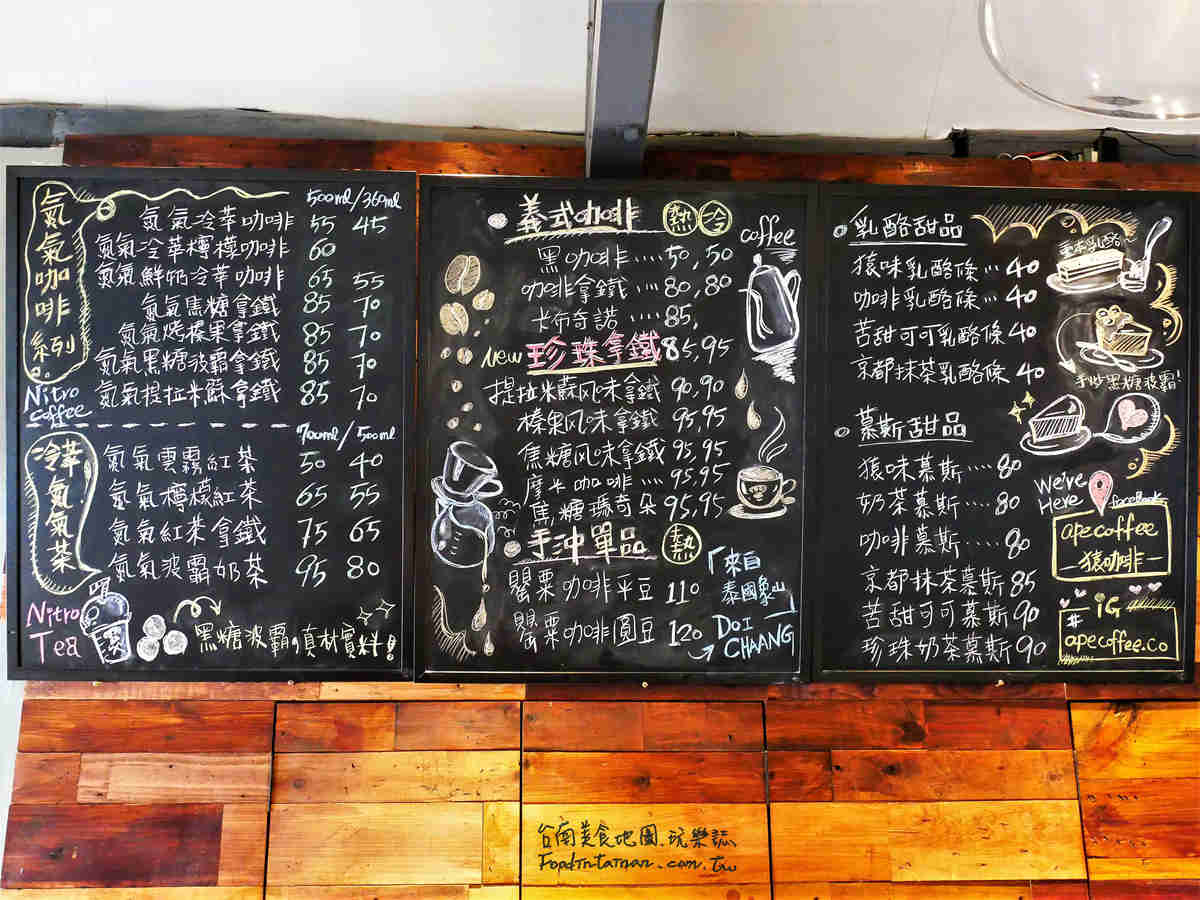 氮氣咖啡系列
Nitro
coffee
500ml/360ml
氮氣冷萃咖啡 55 45
氮氣冷萃檸檬咖啡 60
氮氣鮮奶冷萃咖啡 65 55
氮氣焦糖拿鐵 85 70
氮氣烤榛果拿鐵 85 70
氮氣黑糖波霸拿鐵 85 70
氮氣提拉米蘇拿鐵 85 70
冷萃氮氣茶
Nitro
Tea
700ml/500ml
氮氣雲霧紅茶 50 40
氮氣檸檬紅茶 65 55
氮氣紅茶拿鐵 75 65
氮氣波霸奶茶 95 80
黑糖波霸,真材實料!
義式咖啡 熱 冷
coffee
黑咖啡....50,50
咖啡拿鐵...80,80
卡布奇諾....85,
new 珍珠拿鐵 85,95
提拉米蘇风味拿鐵 90,90
榛果风味拿鐵 95,95
焦糖风味拿鐵 95,95
摩卡咖啡...95,95
焦糖瑪奇朵 95,95
手沖單品 熱
罌粟咖啡平豆 110
罌粟咖啡圓豆 120
「來自
泰國象山」
DOI
CHAANG
乳酪甜品
猿味乳酪條...40
咖啡乳酪條...40
苦甜可可乳酪條 40
京都抹茶乳酪條 40
慕斯甜品
猿味慕斯....80
奶茶慕斯....80
咖啡慕斯....80
京都抹茶慕斯 85
苦甜可可慕斯 90
珍珠奶茶慕斯 90
手炒黑糖波霸!
We're
Here
facebook
apecoffee
—猿咖啡—
iG
#
apecoffee.co
台南美食地圖.玩樂誌
FoodInTainan.com.tw